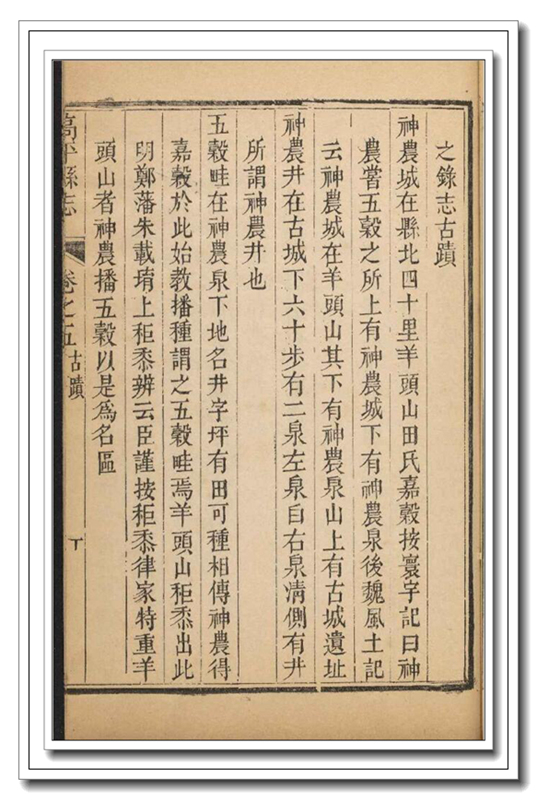 之錄志古蹟
神農城在縣北四十里羊頭山田氏嘉穀按寰宇記曰神
農嘗五穀之所上有神農城下有神農泉後魏風土記
云神農城在羊頭山其下有神農泉山上有古城遺址
神農井在古城下六十步有二泉左泉白右泉清側有井
所謂神農井也
五穀畦在神農泉下地名井字坪有田可種相傳神農得
嘉穀於此始教播種謂之五穀畦焉羊頭山秬黍出此
明鄭藩朱載堉上秬黍辨云臣謹按秬黍律家特重羊
頭山者神農播五穀以是爲名區
高平縣志 卷之五 古蹟